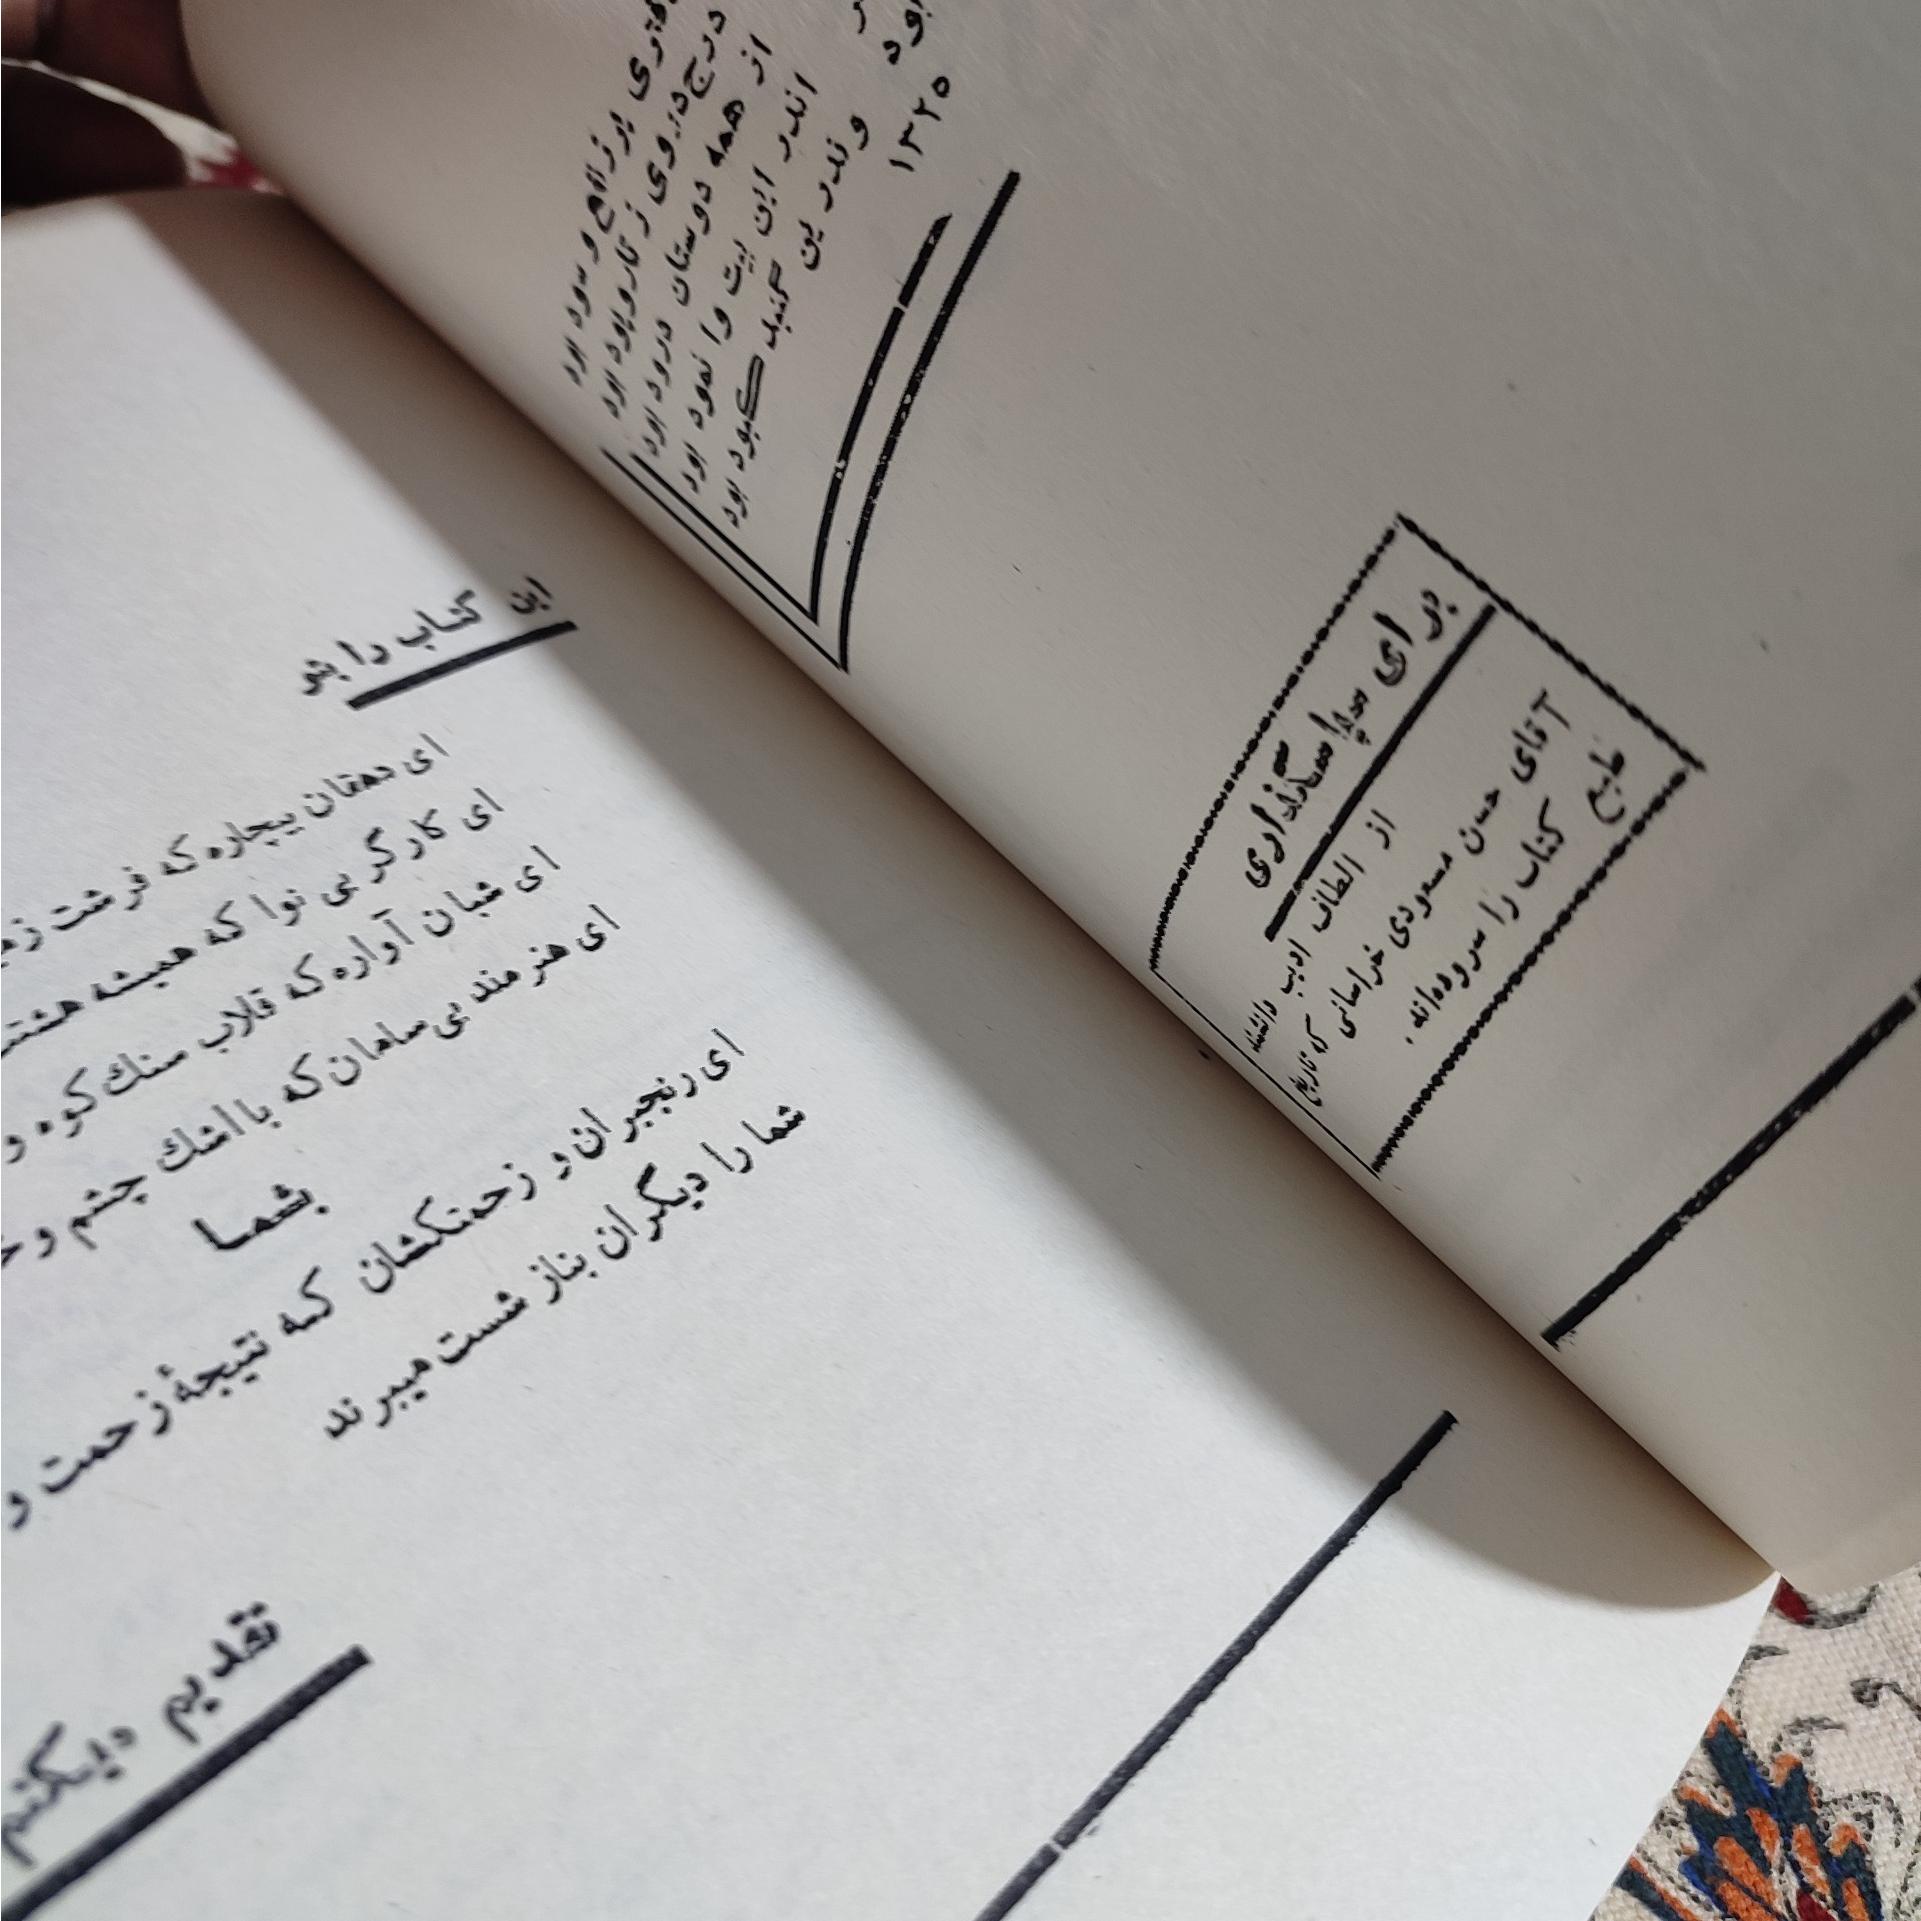 درج در وی ز تار و پود بود
از همه دوستان درود بود
اندر این بیت وا نمود بود
وندرین گنبد کبود بود
۱۳۲۵
برای سپاسگذاری
از الطاف ادیب دانشمند
آقای حسن مسعودی خراسانی که تاریخ
طبع کتاب را سروده‌اند.
این کتاب را بتو
ای دهقان بیچاره که فرشت
ای کارگر بی نوا که همیشه
ای شبان آواره که قلاب سنك کوه و
ای هنرمند بی سامان که با اشك چشم و
بشما
ای رنجبران و زحمتکشان که نتیجهٔ زحمت و
شما را دیگران بناز شست میبرند
تقدیم میکنم